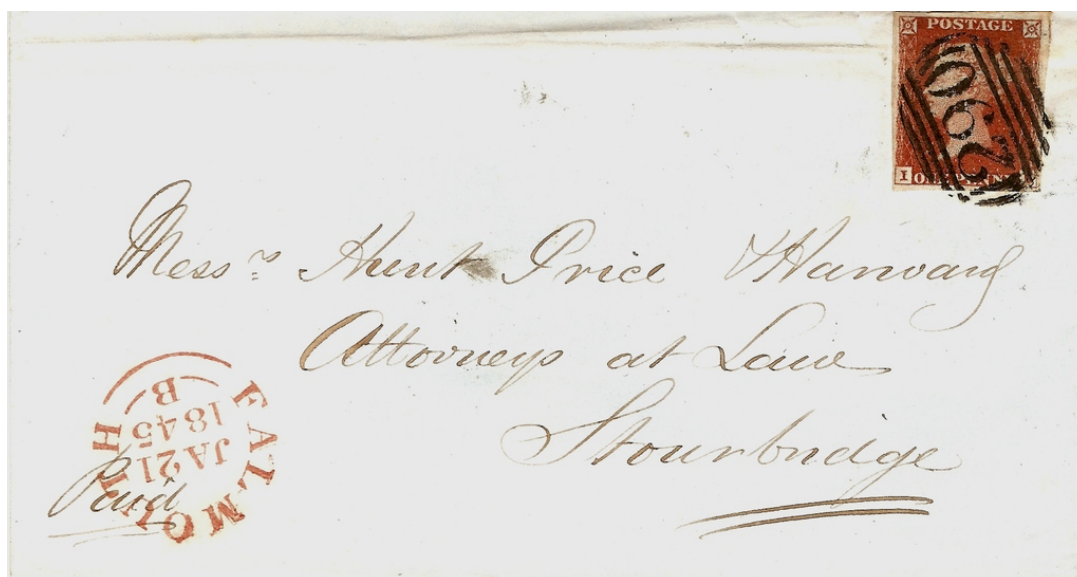 POSTAGE
290
I ONE PENNY
Messrs Hunt Price & Harward
Attorneys at Law
Stourbridge
FALMOUTH
B
1845
JA 21
Paid